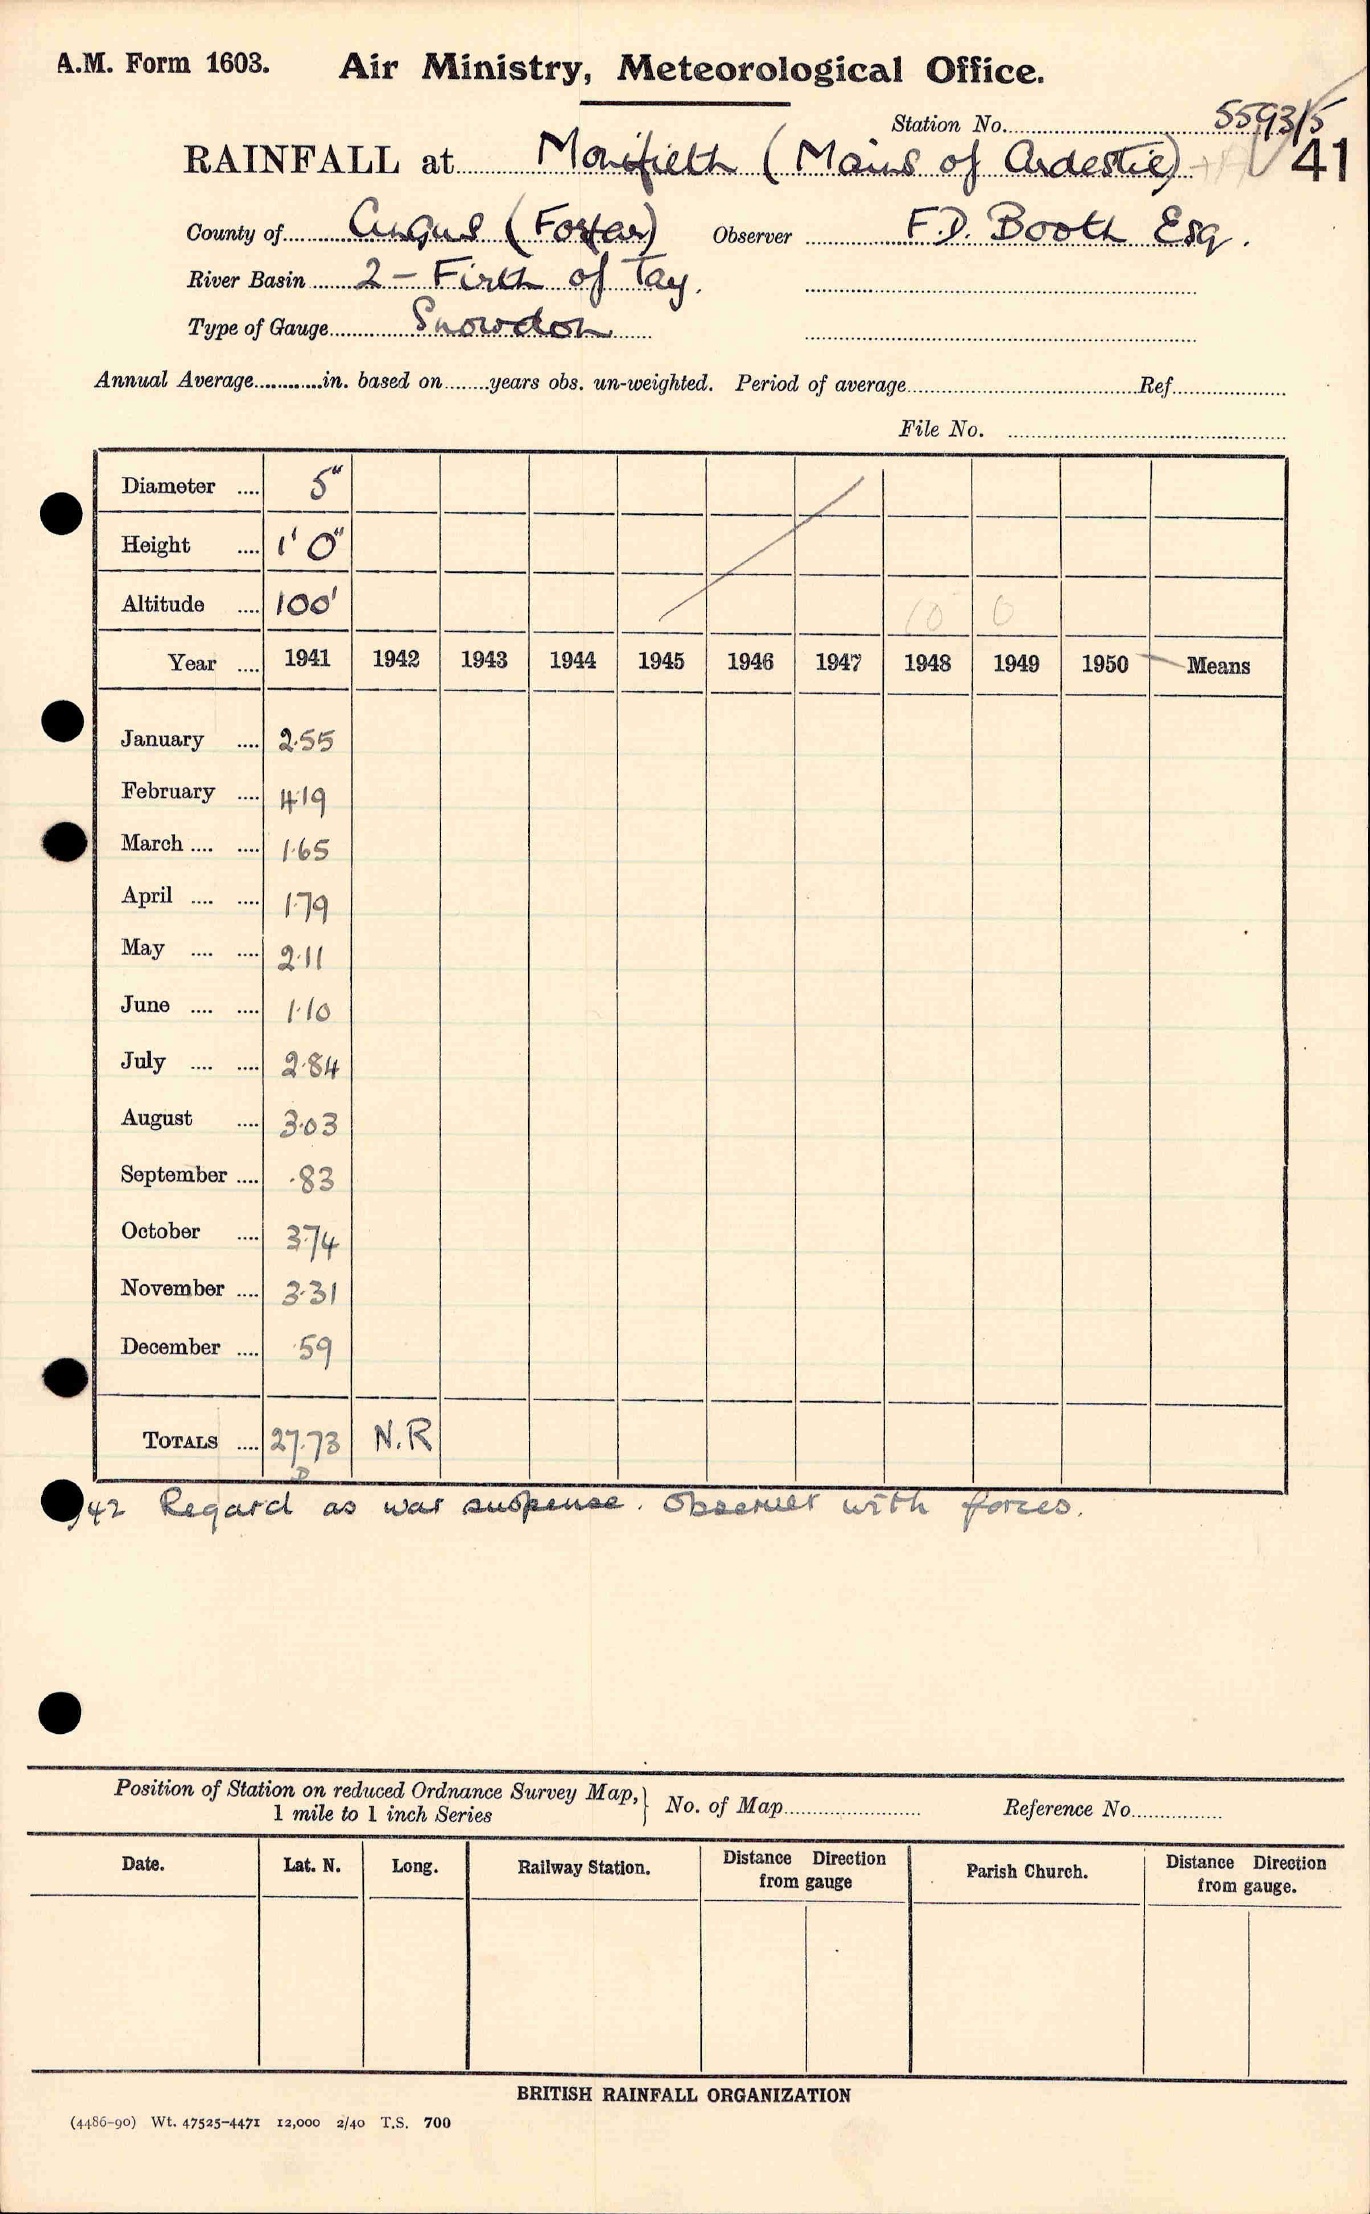 A.M. Form 1603. Air Ministry, Meteorological Office.
Station No. 5593/5
RAINFALL at Monifieth (Mains of Ardestie) 41
County of Angus (Forfar) Observer F.D. Booth Esq.
River Basin 2 - Firth of Tay.
Type of Gauge Snowdon
Annual Average............in. based on.......years obs. un-weighted. Period of average............Ref............
File No. ............
Diameter .... 5"
Height .... 1' 0"
Altitude .... 100' 10 0
Year .... 1941 1942 1943 1944 1945 1946 1947 1948 1949 1950 Means
January .... 2.55
February .... 4.19
March .... .... 1.65
April .... .... 1.79
May .... .... 2.11
June .... .... 1.10
July .... .... 2.84
August .... 3.03
September .... .83
October .... 3.74
November .... 3.31
December .... .59
TOTALS .... 27.73 N.R
42 Regard as war suspense. Observer with forces.
Position of Station on reduced Ordnance Survey Map, 1 mile to 1 inch Series } No. of Map............ Reference No............
Date. Lat. N. Long. Railway Station. Distance Direction from gauge Parish Church. Distance Direction from gauge.
BRITISH RAINFALL ORGANIZATION
(4486-90) Wt. 47525-4471 12,000 2/40 T.S. 700